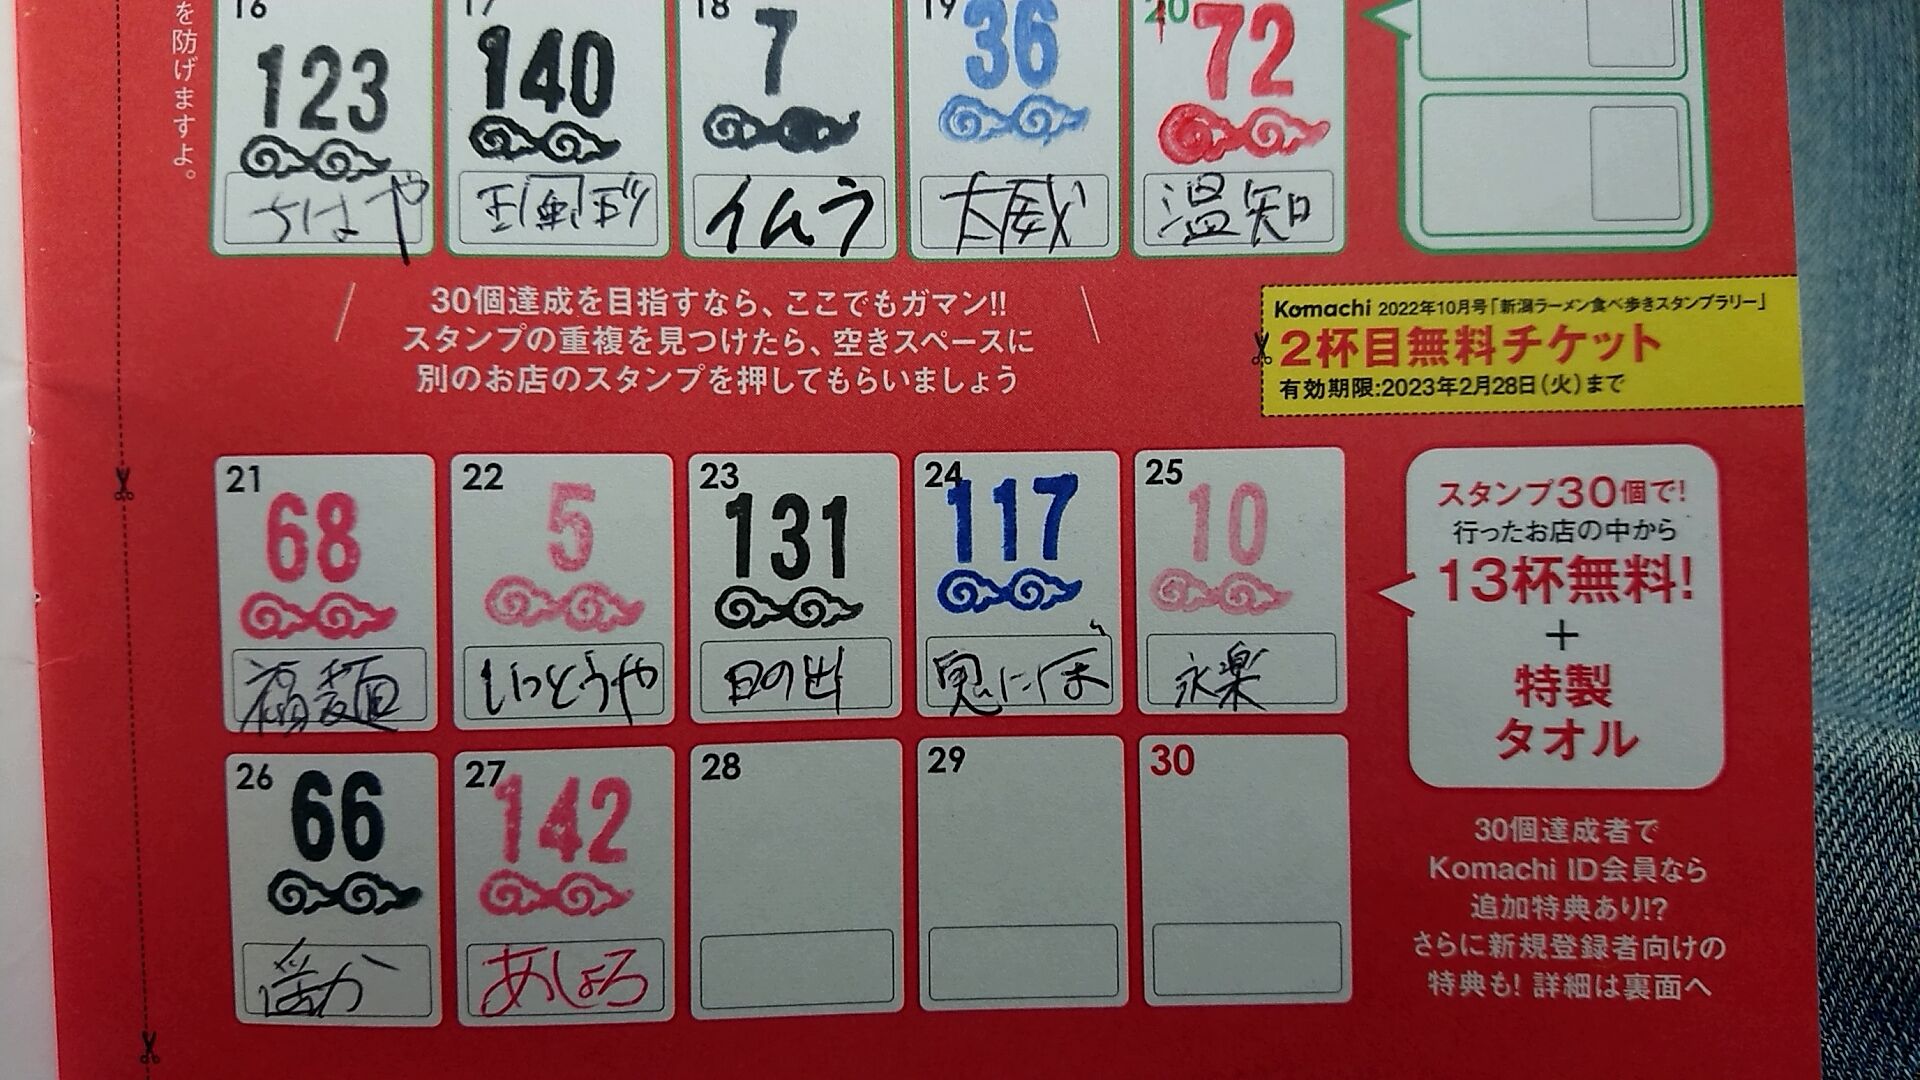 を防げますよ。
16
123
ちはや
17
140
18
7
イムラ
19
36
太威
20
72
温知
30個達成を目指すなら、ここでもガマン!!
スタンプの重複を見つけたら、空きスペースに
別のお店のスタンプを押してもらいましょう
Komachi 2022年10月号「新潟ラーメン食べ歩きスタンプラリー」
2杯目無料チケット
有効期限:2023年2月28日(火)まで
21
68
福麺
22
5
いっとうや
23
131
日の出
24
117
鬼にぼ
25
10
永楽
スタンプ30個で!
行ったお店の中から
13杯無料!
+
特製
タオル
26
66
27
142
あしょろ
28
29
30
30個達成者で
Komachi ID会員なら
追加特典あり!?
さらに新規登録者向けの
特典も! 詳細は裏面へ